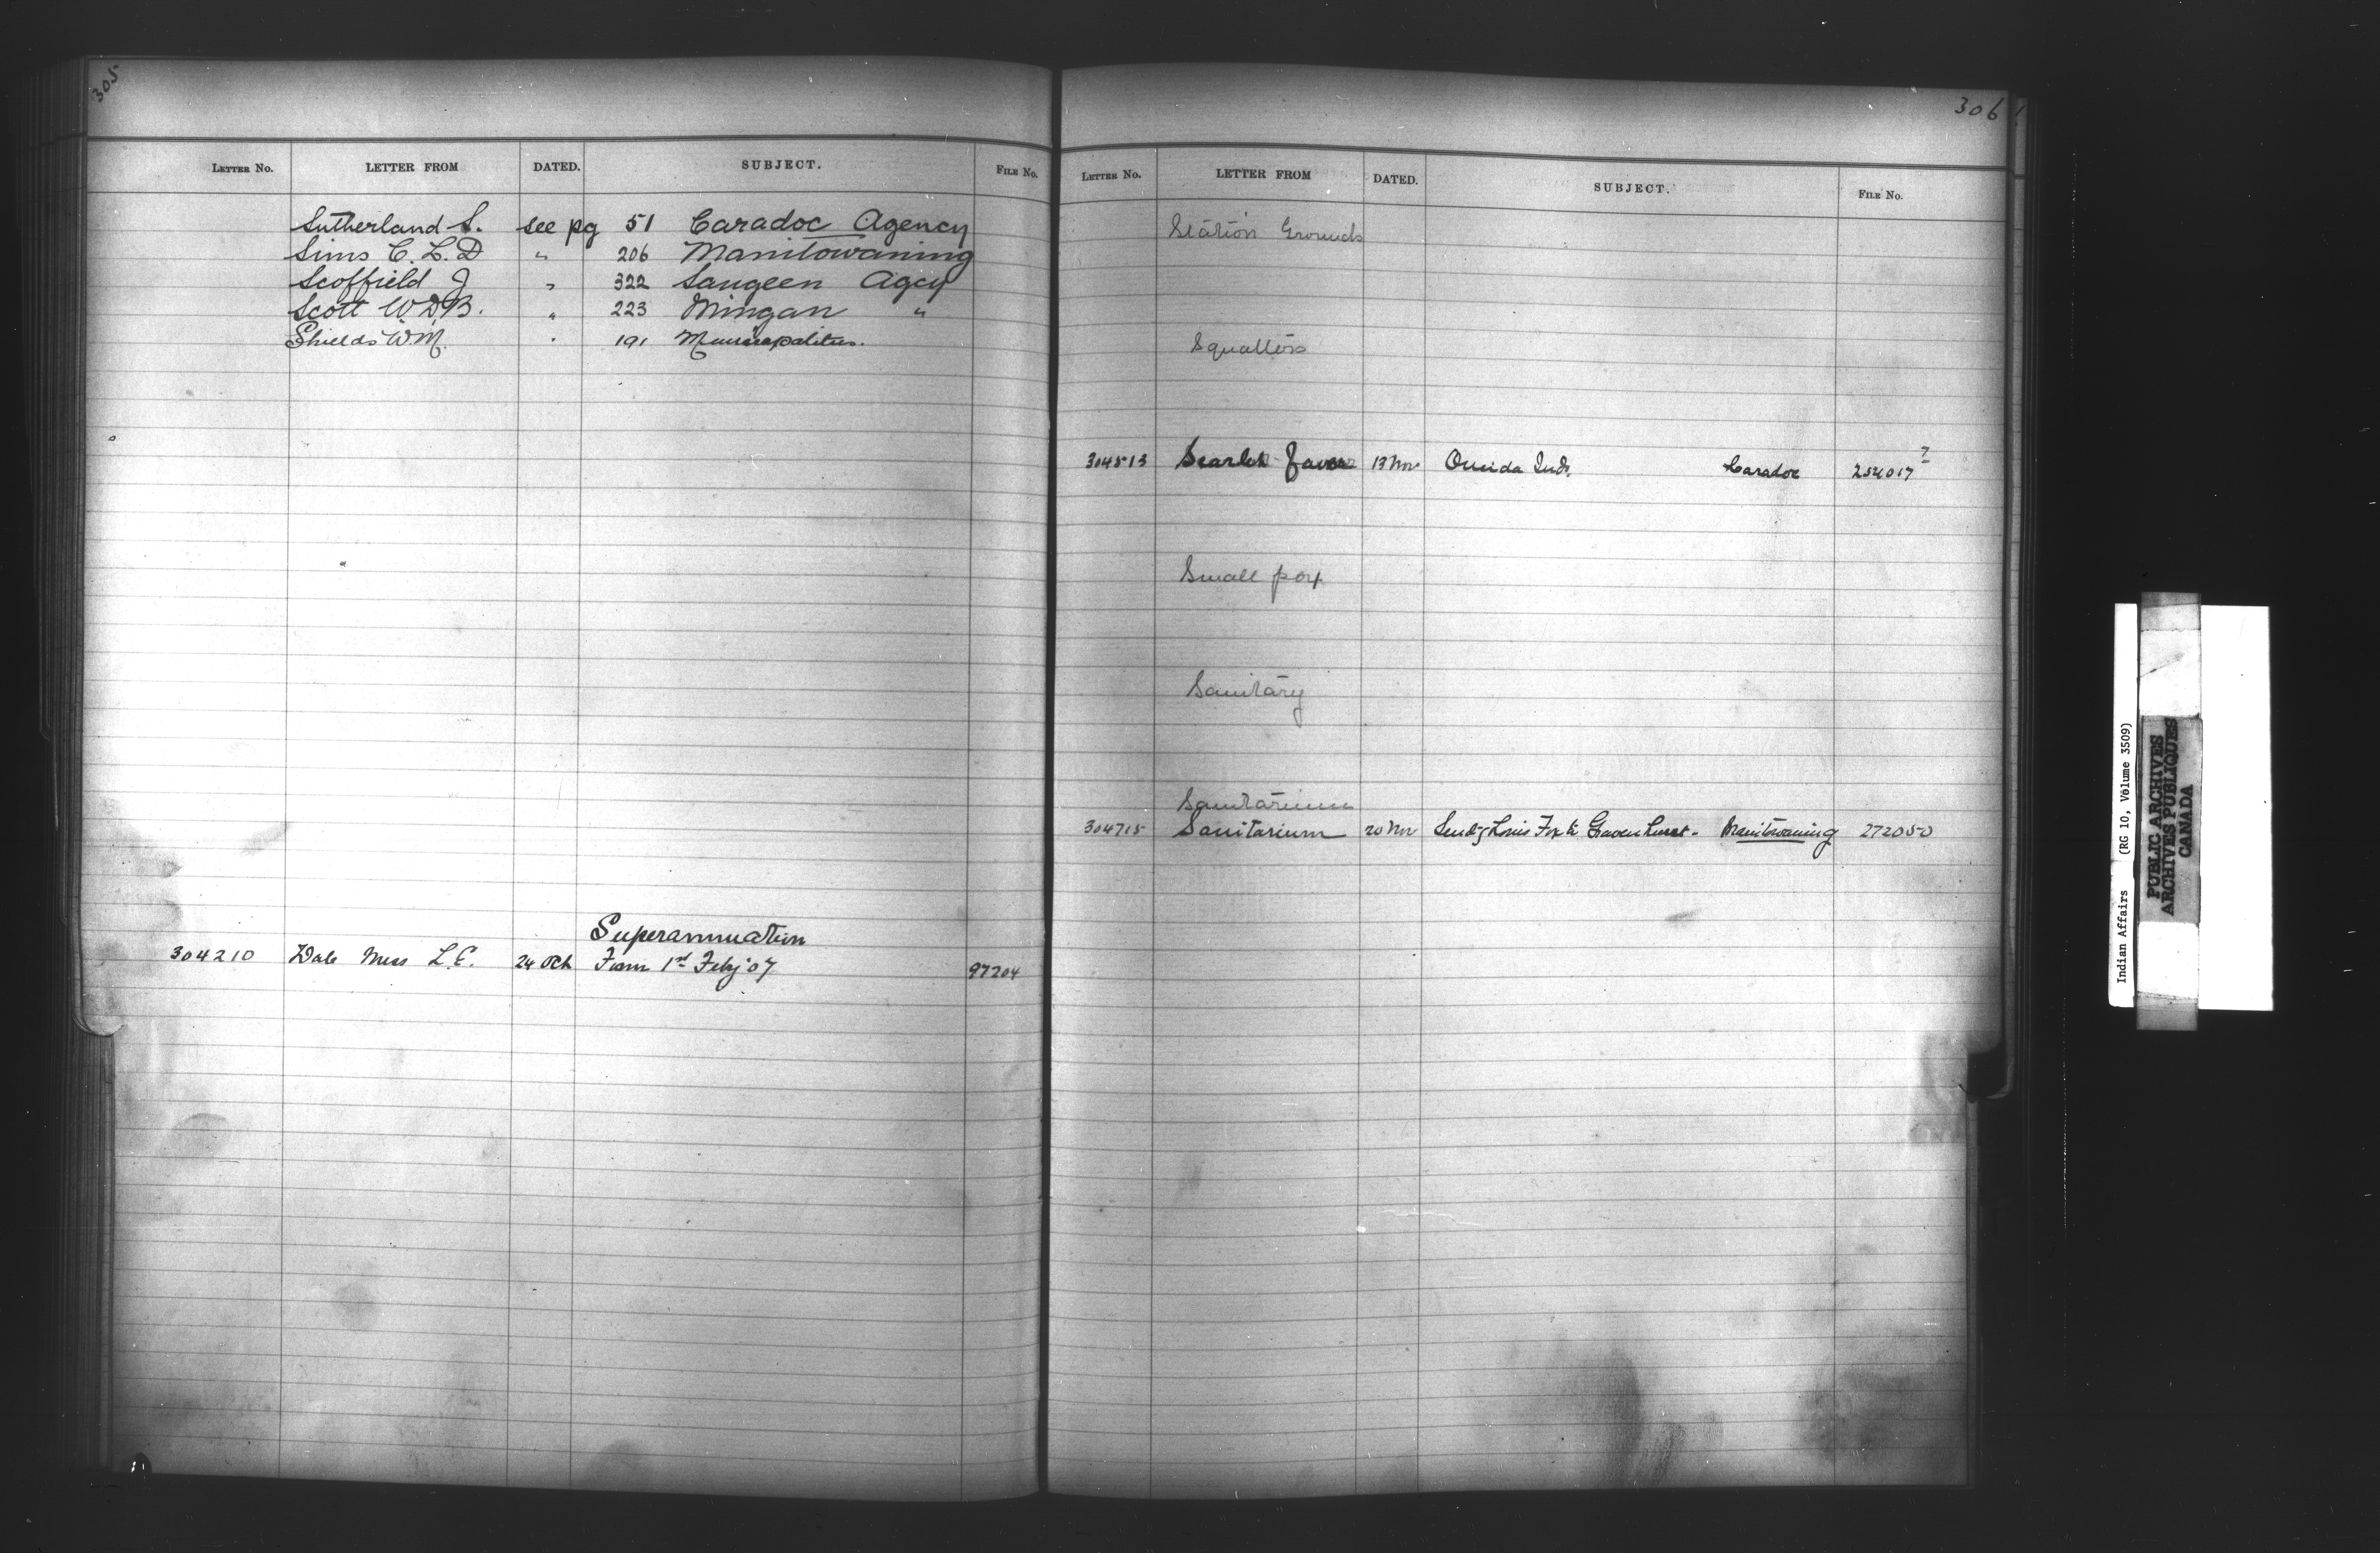 305
LETTER NO. LETTER FROM DATED. SUBJECT. FILE NO.
Sutherland S. see pg 51 Caradoc Agency
Sims C. L. D " 206 Manitowaning
Scoffield J " 322 Saugeen Agcy
Scott W. D. B. " 223 Mingan "
Shields W. M. " 191 Municipalities.
Superannuation
304210 Dale Miss L. E. 24 Oct From 1st Feby '07 97204
306
LETTER NO. LETTER FROM DATED. SUBJECT. FILE NO.
Station Grounds
Squatters
304513 Scarlet fever 13 Nov Oneida Inds. Caradoc 254017 7
Small pox
Sanitary
Sanitarium
304715 Sanitarium 20 Nov Send'g Louis Fox to Gravenhurst - Manitowaning 272050
Indian Affairs (RG 10, Volume 3509)
PUBLIC ARCHIVES
ARCHIVES PUBLIQUES
CANADA